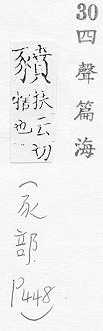 30
四聲篇海
豶扶云切
犗也
(豕部 P448)